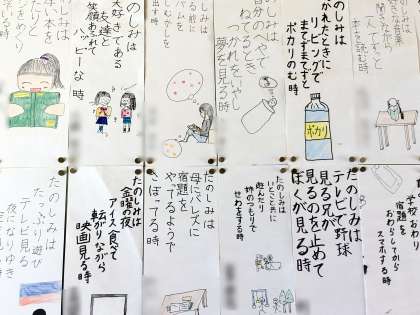 一人でずっと
本を読む時
のしみは
かれたときに
リビングで
まてずまてずと
ポカリのむ時
ポカリ
のしみは
自分のへやで
ねてるとき
つかれをいやし
夢を見る時
しみは
出す時
のしみは
大好きである
友達と
笑顔あふれて
ハッピーな時
しみは
本を
ジをめくり
む時
学校おわり
宿題を
おわらしてから
スマホする時
たのしみは
テレビで野球
見る兄が
見るのを止めて
ぼくが見る時
たのしみは
いとこたちに
遊んだり
妹のつもりで
せわをする時
たのしみは
母にバレズに
宿題を
やってるようで
さぼってる時
たのしみは
金曜の夜
アイス食べて
転がりながら
映画見る時
たのしみは
たっぷり遊び
テレビ見る
夜になりゆき